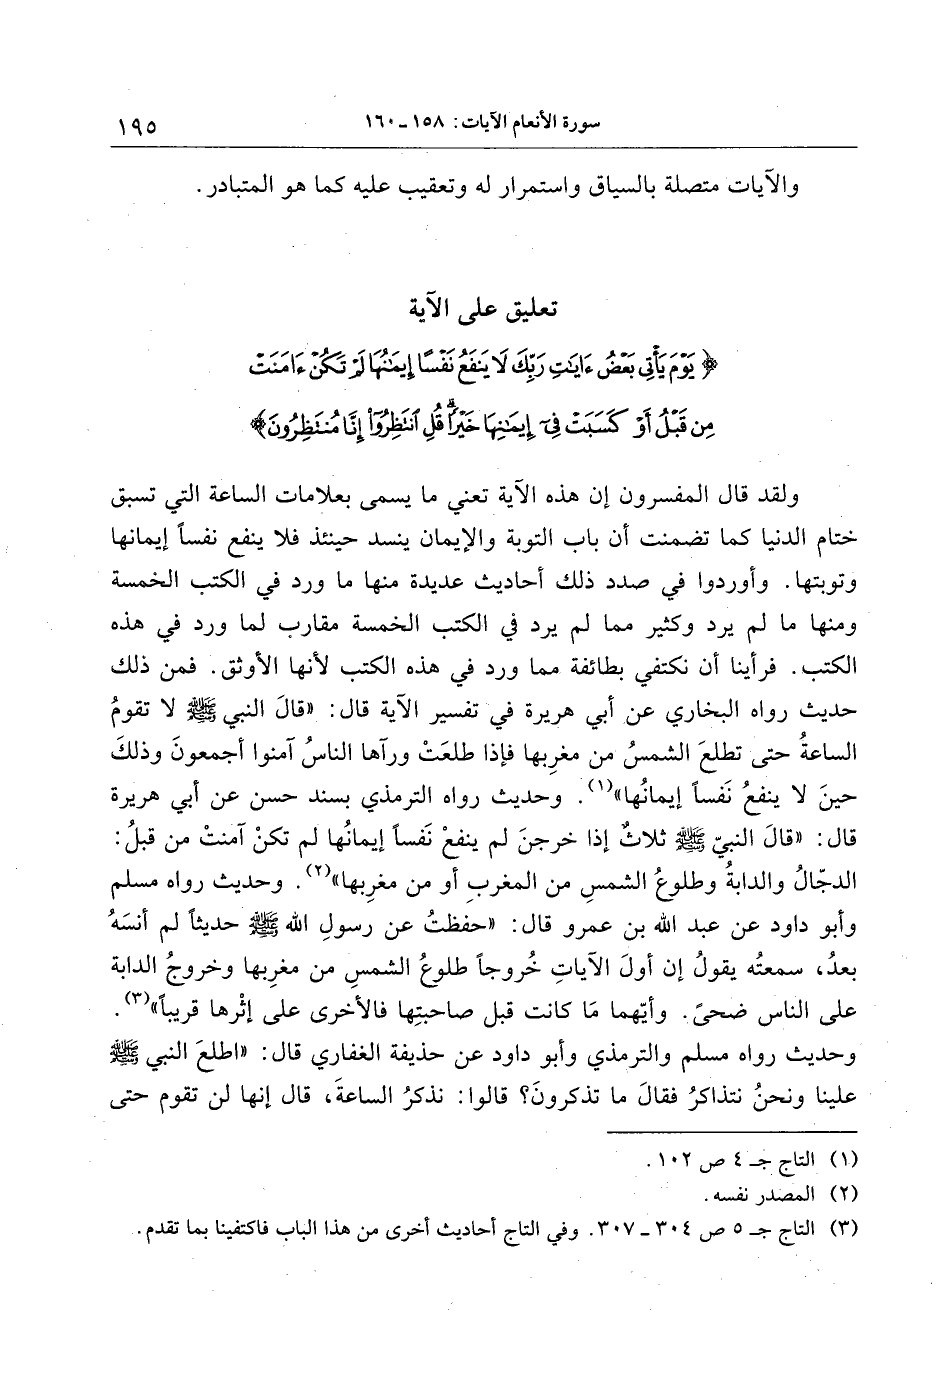 سورة الأنعام الآيات: ١٥٨ ـ ١٦٠ ١٩٥
والآيات متصلة بالسياق واستمرار له وتعقيب عليه كما هو المتبادر.
تعليق على الآية
﴿يَوْمَ يَأْتِي بَعْضُ ءَايَٰتِ رَبِّكَ لَا يَنفَعُ نَفْسًا إِيمَٰنُهَا لَمْ تَكُنْ ءَامَنَتْ
مِن قَبْلُ أَوْ كَسَبَتْ فِىٓ إِيمَٰنِهَا خَيْرًاۗ قُلِ ٱنتَظِرُوٓا۟ إِنَّا مُنتَظِرُونَ﴾
ولقد قال المفسرون إن هذه الآية تعني ما يسمى بعلامات الساعة التي تسبق
ختام الدنيا كما تضمنت أن باب التوبة والإيمان ينسد حينئذ فلا ينفع نفساً إيمانها
وتوبتها. وأوردوا في صدد ذلك أحاديث عديدة منها ما ورد في الكتب الخمسة
ومنها ما لم يرد وكثير مما لم يرد في الكتب الخمسة مقارب لما ورد في هذه
الكتب. فرأينا أن نكتفي بطائفة مما ورد في هذه الكتب لأنها الأوثق. فمن ذلك
حديث رواه البخاري عن أبي هريرة في تفسير الآية قال: «قالَ النبي ﷺ لا تقومُ
الساعةُ حتى تطلعَ الشمسُ من مغربِها فإذا طلعَتْ ورآها الناسُ آمنوا أجمعونَ وذلكَ
حينَ لا ينفعُ نَفساً إيمانُها»(١). وحديث رواه الترمذي بسند حسن عن أبي هريرة
قال: «قالَ النبيّ ﷺ ثلاثٌ إذا خرجنَ لم ينفعْ نَفساً إيمانُها لم تكنْ آمنتْ من قبلُ:
الدجّالُ والدابةُ وطلوعُ الشمسِ من المغربِ أو من مغربِها»(٢). وحديث رواه مسلم
وأبو داود عن عبد الله بن عمرو قال: «حفظتُ عن رسولِ الله ﷺ حديثاً لم أنسَهُ
بعدُ، سمعتُه يقولُ إن أولَ الآياتِ خُروجاً طلوعُ الشمسِ من مغربِها وخروجُ الدابة
على الناسِ ضحىً. وأيّهما مَا كانت قبل صاحبتِها فالأخرى على إثْرها قريباً»(٣).
وحديث رواه مسلم والترمذي وأبو داود عن حذيفة الغفاري قال: «اطلعَ النبي ﷺ
علينا ونحنُ نتذاكرُ فقالَ ما تذكرونَ؟ قالوا: نذكرُ الساعةَ، قال إنها لن تقوم حتى
(١) التاج جـ ٤ ص ١٠٢.
(٢) المصدر نفسه.
(٣) التاج جـ ٥ ص ٣٠٤ ـ ٣٠٧. وفي التاج أحاديث أخرى من هذا الباب فاكتفينا بما تقدم.